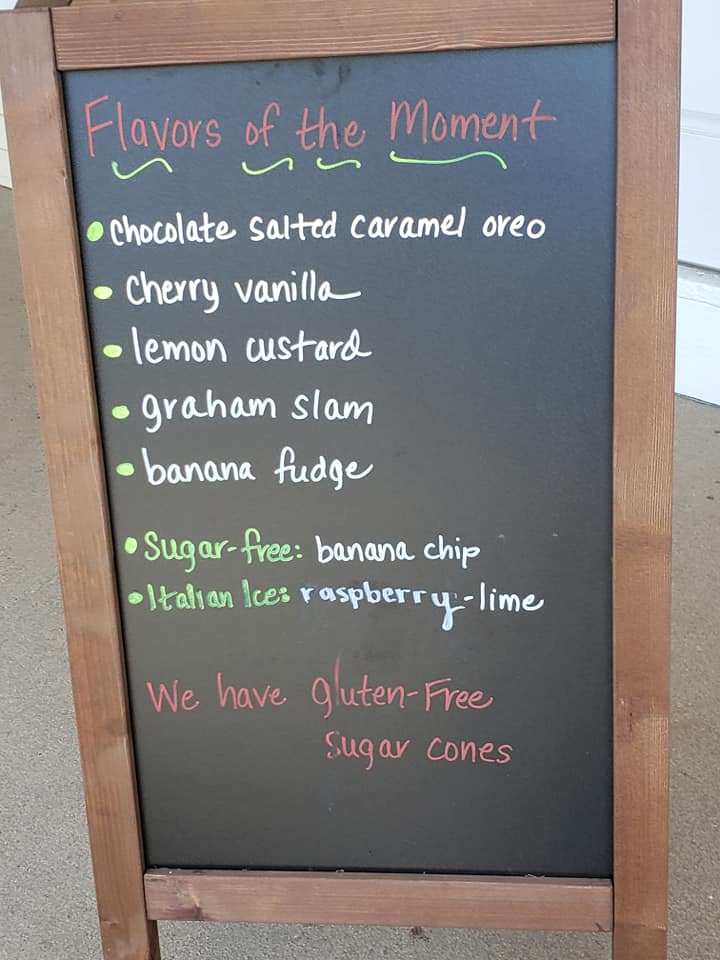 Flavors of the Moment
• Chocolate salted caramel oreo
• Cherry vanilla
• lemon custard
• graham slam
• banana fudge
• Sugar-free: banana chip
• Italian Ice: raspberry-lime
We have gluten-Free
Sugar cones